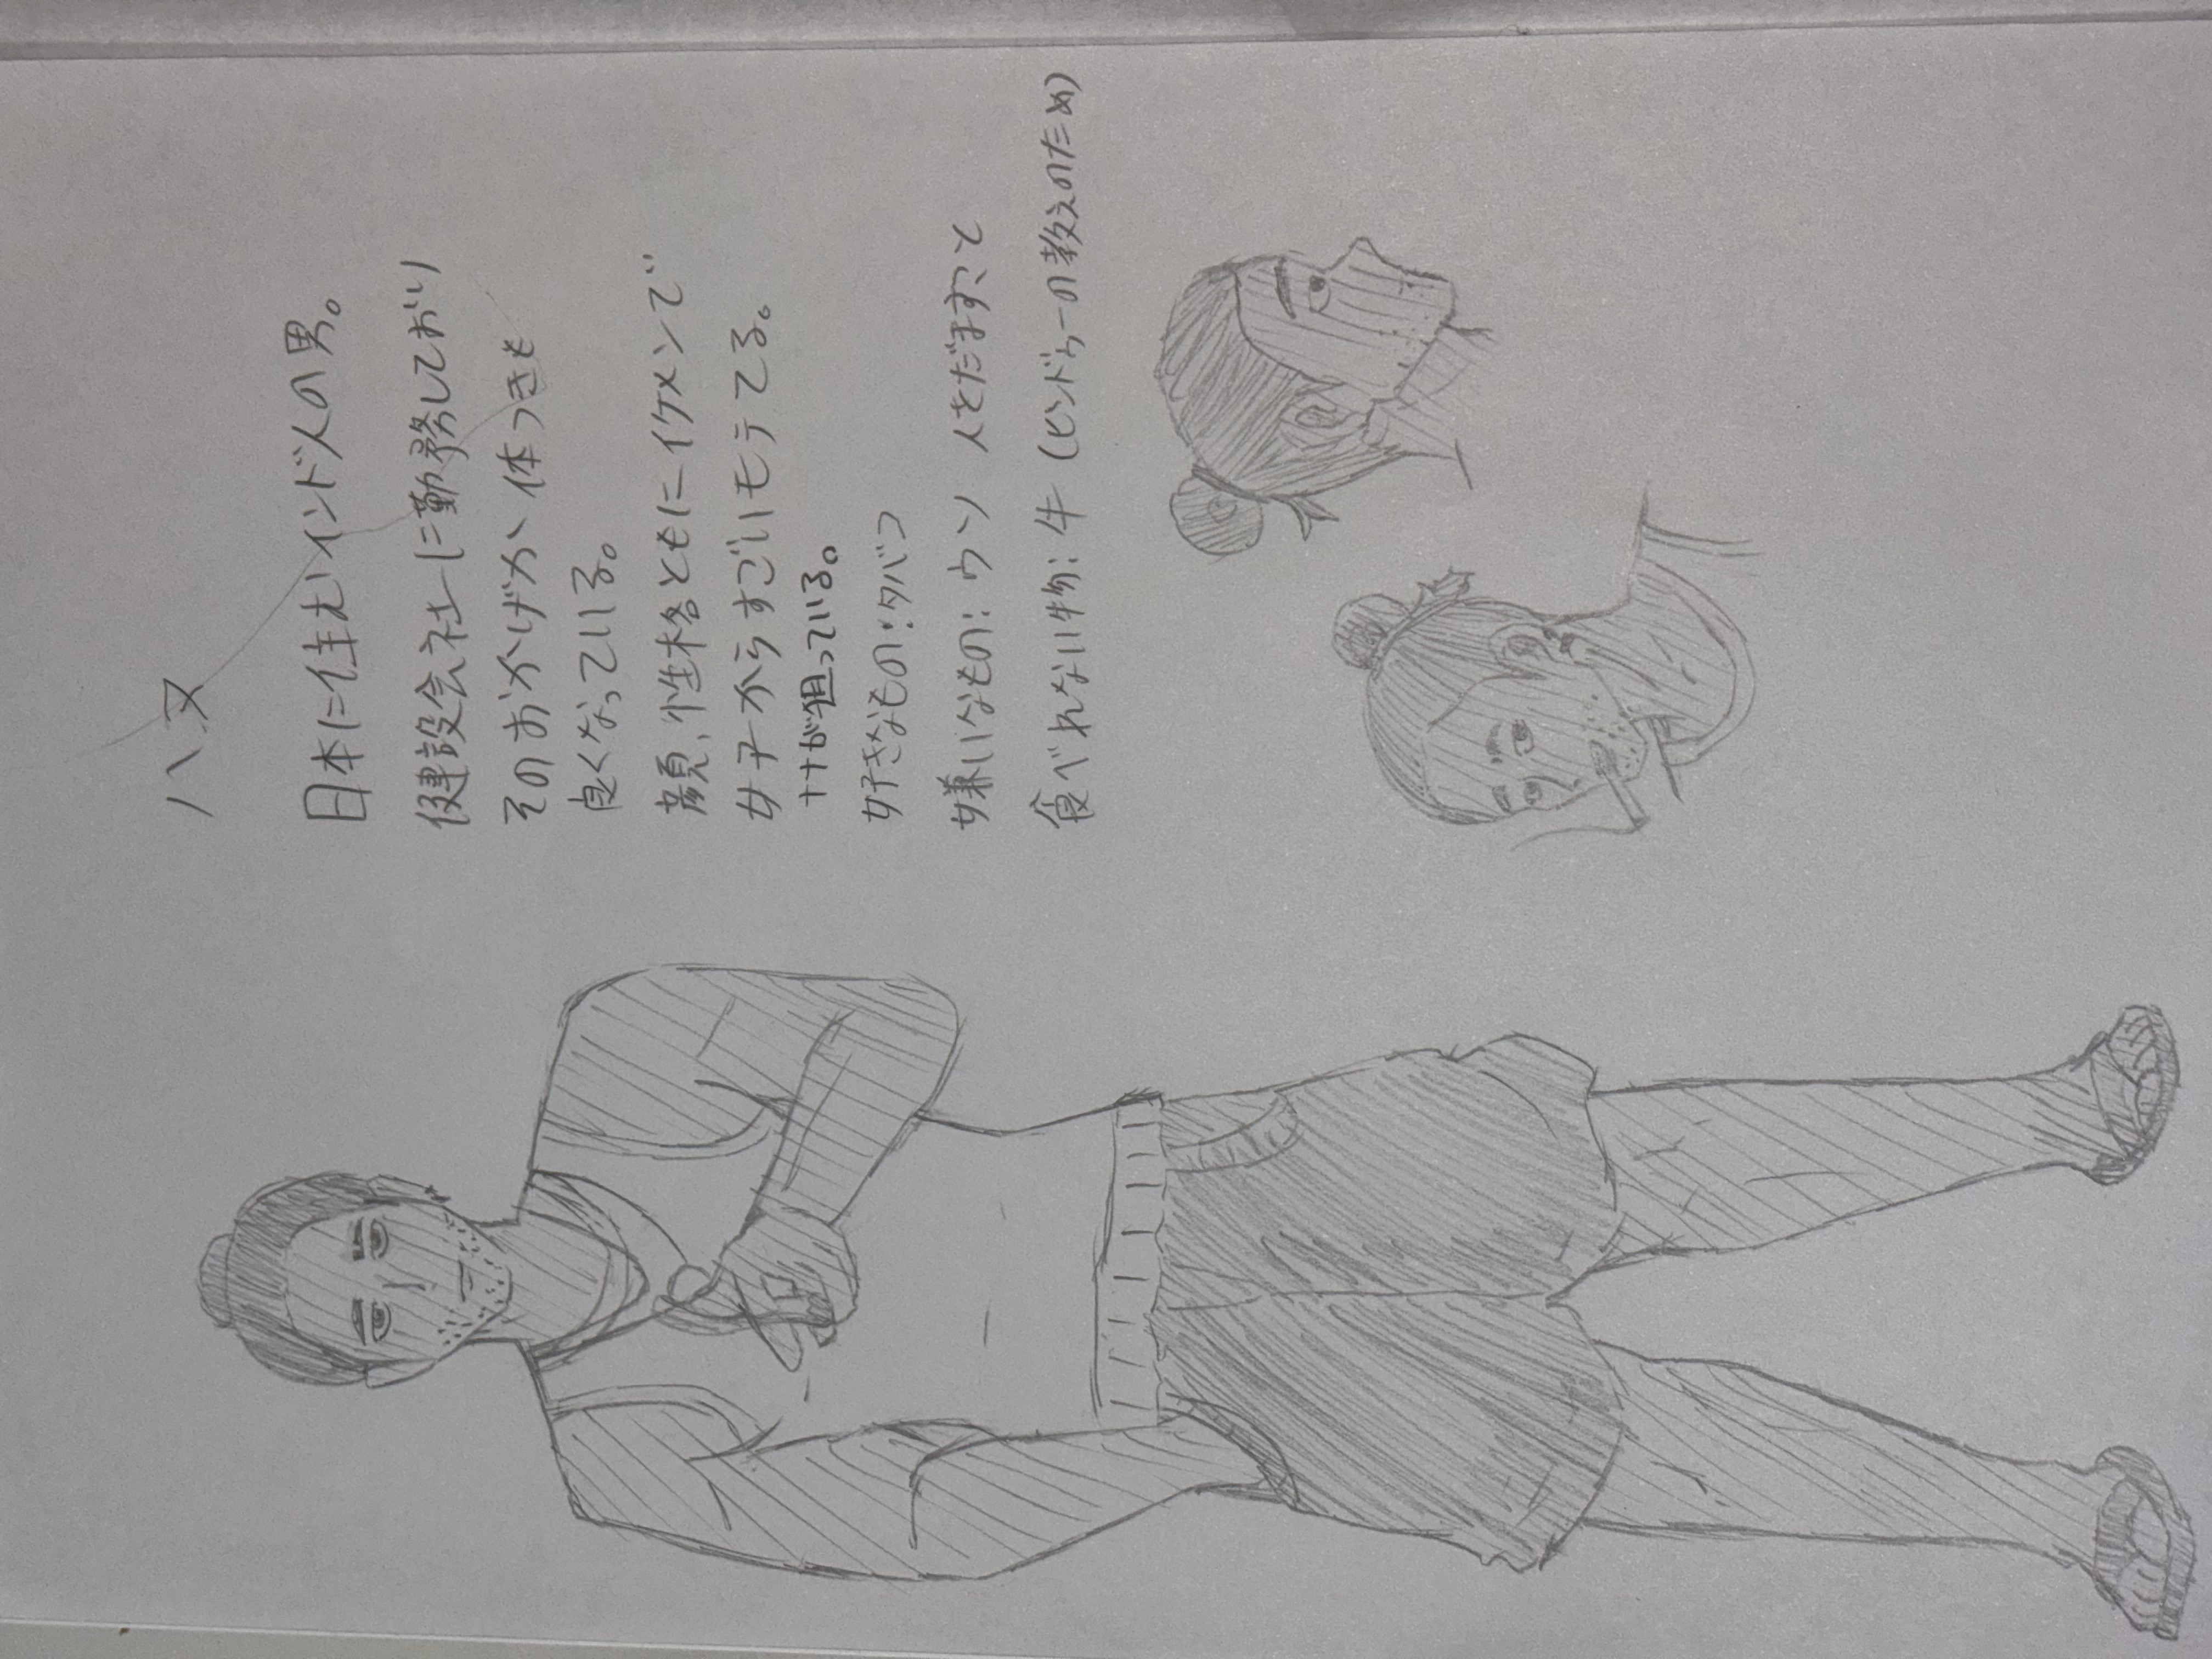 ハヌ
日本に住むインド人の男。
建設会社に勤務しており
そのおかげか、体つきも
良くなっている。
顔、性格ともにイケメンで
女子からすごいモテてる。
ナナが狙っている。
好きなもの:タバコ
嫌いなもの:ウソ 人をだますこと
食べれない物:牛 (ヒンドゥーの教えのため)